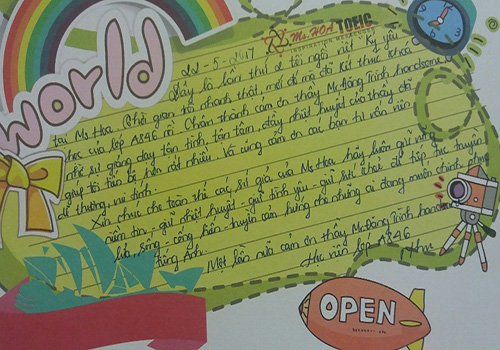 World
Ms. HOA TOEIC
INSPIRATION MOVEMENTS
22-5-2017
Đây là lần thứ 2 tôi ngồi viết "Kỷ yếu"
tại Ms Hoa. Thời gian trôi nhanh thật, mới đó mà đã kết thúc khóa
học của lớp A846 rồi. Chân thành cảm ơn thầy Mr. Đăng Trình handsome vì
nhờ sự giảng dạy tận tình, tận tâm, đầy nhiệt huyết của thầy đã
giúp tôi tiến bộ hơn rất nhiều. Và cũng cảm ơn các bạn tôi vẫn
dễ thương, vui tính.
Xin chúc cho toàn thể các sứ giả của Ms Hoa hãy luôn giữ vững
niềm tin, giữ nhiệt huyết - giữ tình yêu - giữ sức khoẻ để tiếp tục truyền
lửa, sống - cống hiến - truyền cảm hứng cho những ai đang muốn chinh phục
tiếng Anh.
Một lần nữa cảm ơn thầy Mr. Đăng Trình handsome
Học viên lớp A846
Như
OPEN